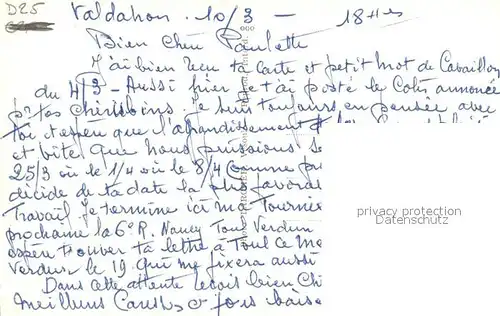 D25
Valdahon. 10/3 — 18 Hes
Bien chère Paulette
J'ai bien reçu ta carte et petit mot de Cavaillon
du 4/3 - Aussi hier je t'ai posté le Colis annoncé
pr tes chérubins. Je suis toujours en pensée avec
toi et espère que l'agrandissement
et vite que nous puissions se
25/3 ou le 1/4 ou le 8/4 comme
décide de ta date la plus favora
Travail. Je termine ici ma Tournée
prochaine la 6e R. Nancy Toul Verdun
espère trouver ta lettre à Toul ce
Verdun le 19 qui me fixera aussi
Dans cette attente reçois bien Ch
meilleurs Caresses & gros baise
privacy protection
Datenschutz